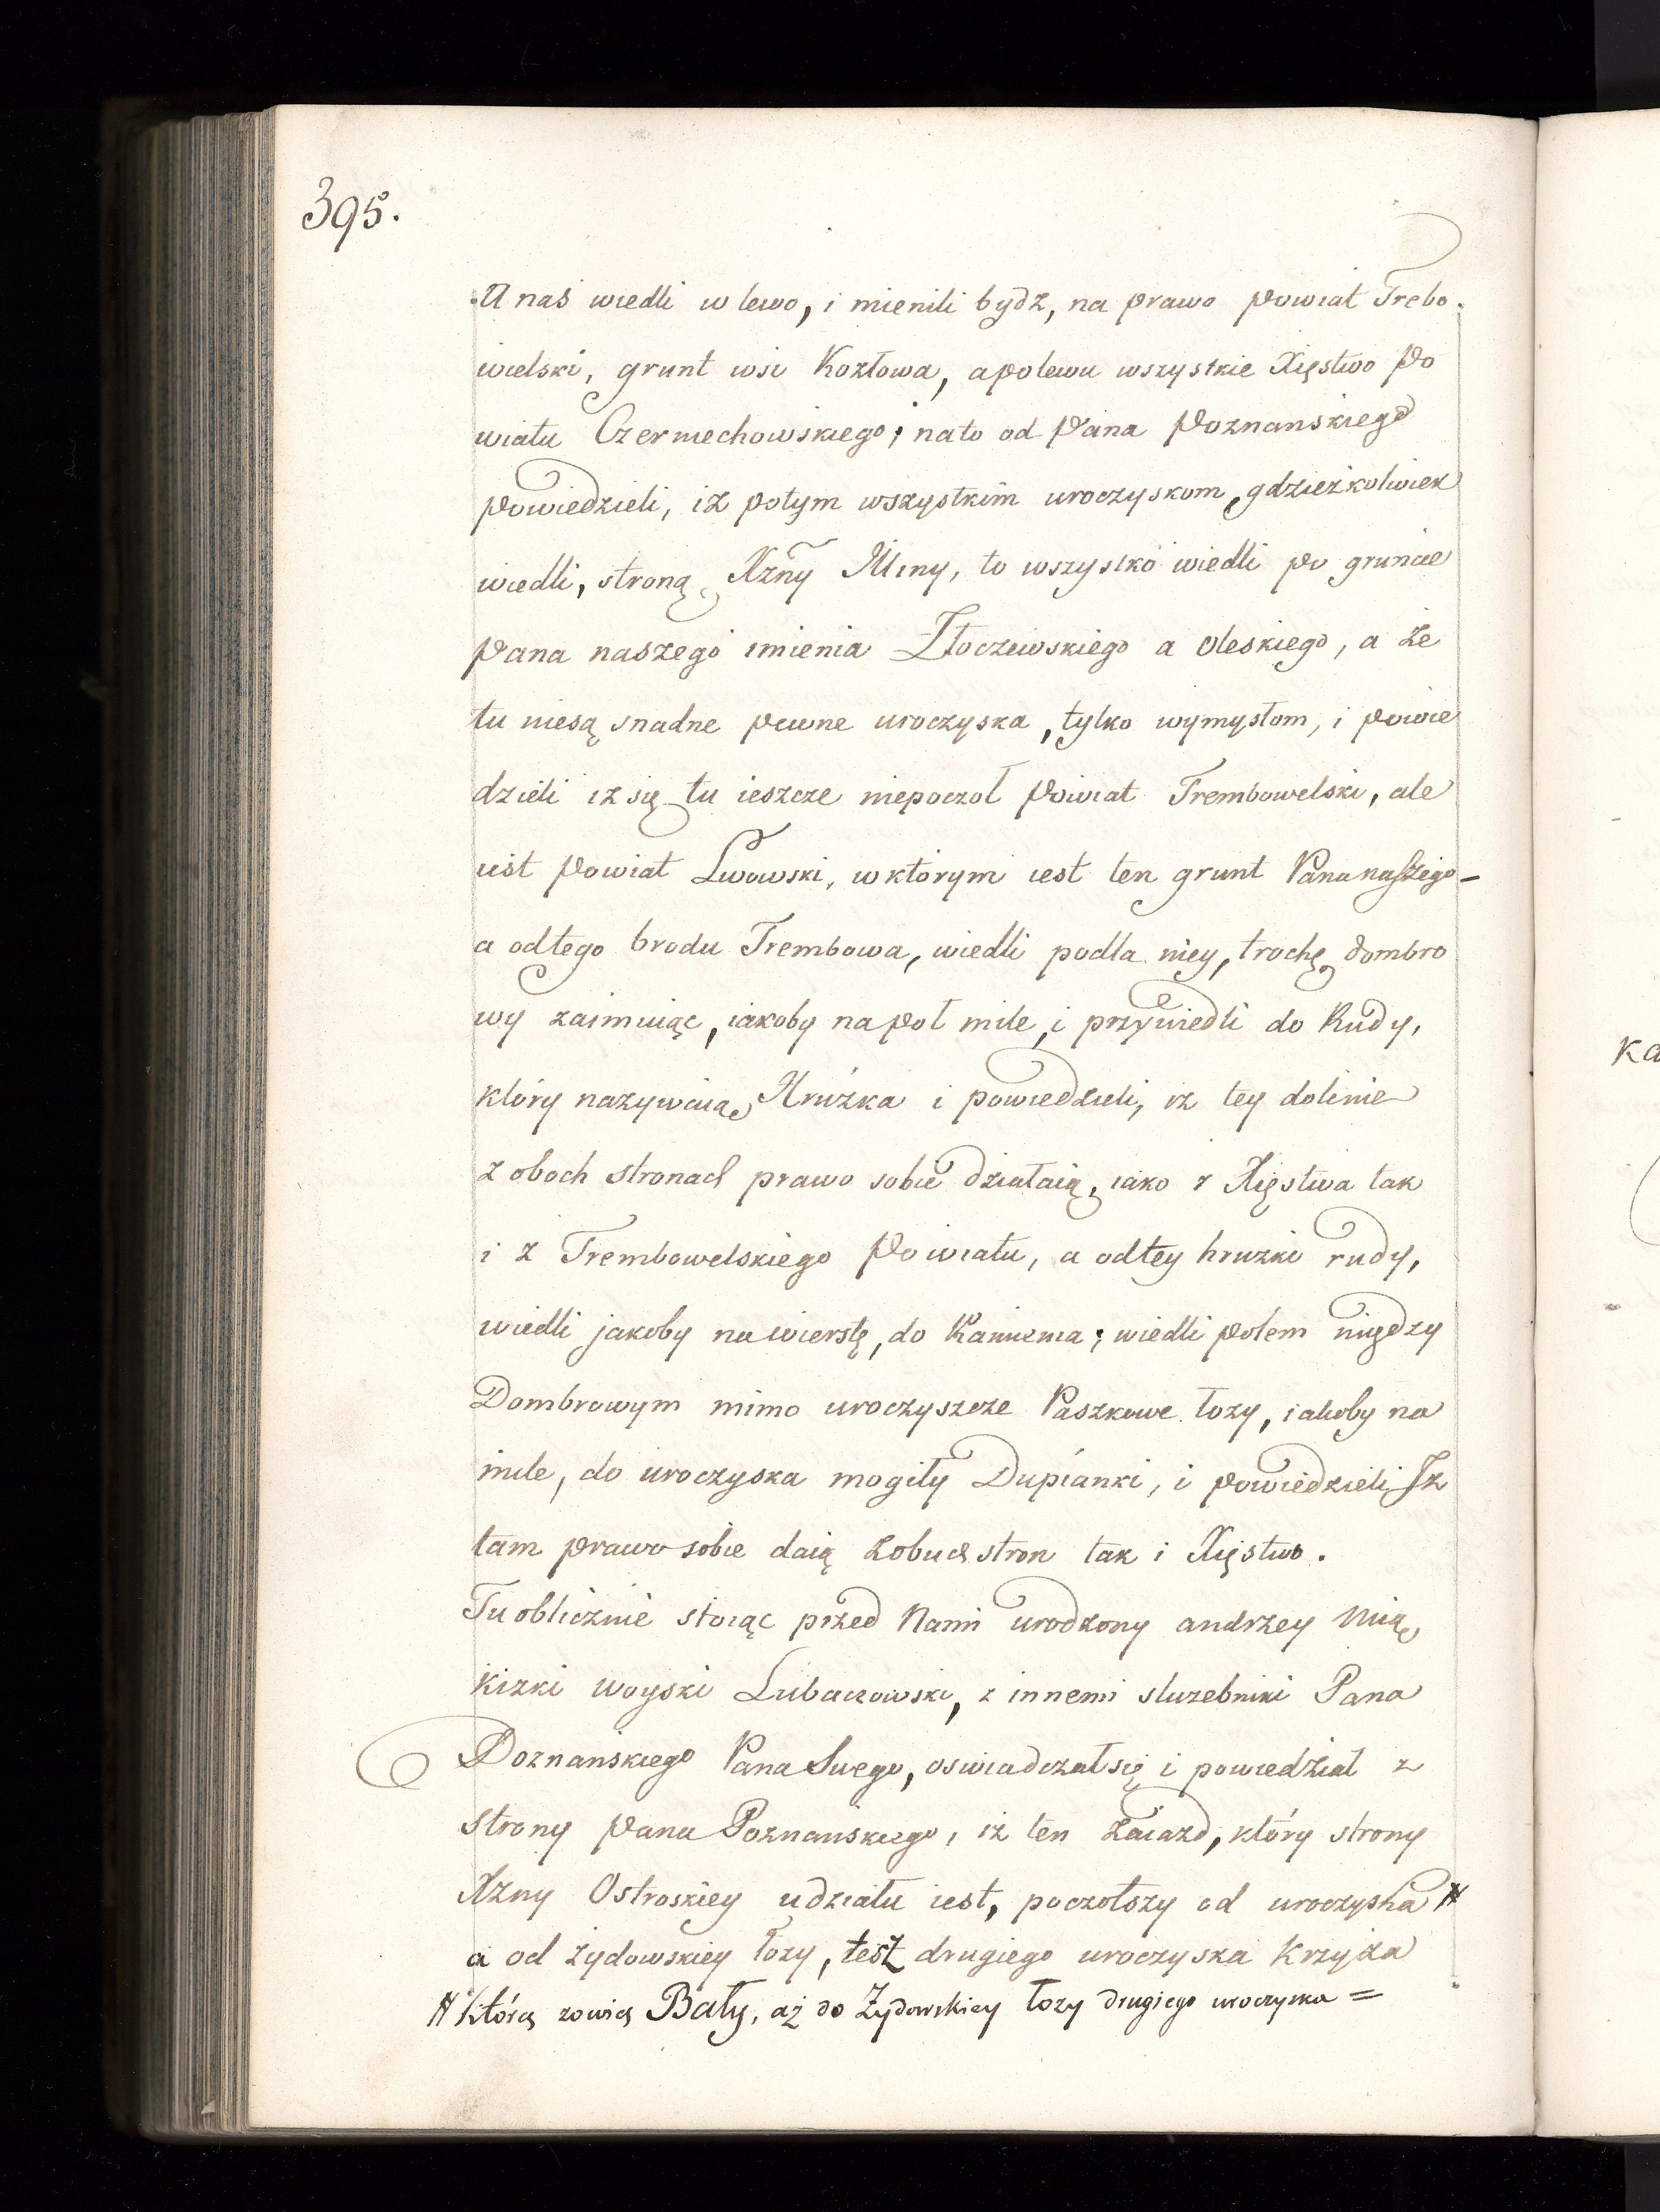 395.
A nas wiedli w lewo, i mienili bydz, na prawo powiat Trebo.
wielski, grunt wsi Kozłowa, apolewu wszystkie Xięstwo po
wiatu Czerniechowskiego; nato od Pana Poznanskiego
powiedzieli, iż potym wszystkim uroczyskom, gdzieżkolwiek
wiedli, stroną Xżny Jlliny, to wszystko wiedli po gruncie
Pana naszego imienia Złoczewskiego a oleskiego, a że
tu niesą snadne pewne uroczyska, tylko wymysłom, i powie
dzieli iż się tu ieszcze niepoczoł Powiat Trembowelski, ale
iest Powiat Lwowski, w którym iest ten grunt Pana naszego -
a odtego brodu Trembowa, wiedli podla niey, trochę dombro
wy zaimuiąc, iakoby na poł mile, i przywiedli do Rudy,
który nazywaią Hruzka i powiedzieli, iż tey dolinie
z oboch stronach prawo sobie działaią, iako z Xięstwa tak
i z Trembowelskiego Powiatu, a odtey hruzki rudy,
wiedli jakoby na wierstę, do Kamienia; wiedli polem między
Dombrowym mimo uroczyszcze Paszkowe łozy, iakoby na
mile, do uroczyska mogiły Dupianki, i powiedzieli Iż
tam prawo sobie daią zobuch stron tak i Xięstwo.
Tu oblicznie stoiąc przed Nami urodzony andrzey Mią
kizki woyski Lubaczowski, z innemi sluzebniki Pana
Poznanskiego Pana Swego, oswiadczał się i powiedział z
strony Pana Poznanskiego, iż ten zaiazd, który strony
Xżny Ostroskiey udziału iest, poczołszy od uroczyska #
a od żydowskiey łozy, też drugiego uroczyska Krzyża
# którą zowią Bały, aż do Żydowskiey łozy drugiego uroczyska =
ka